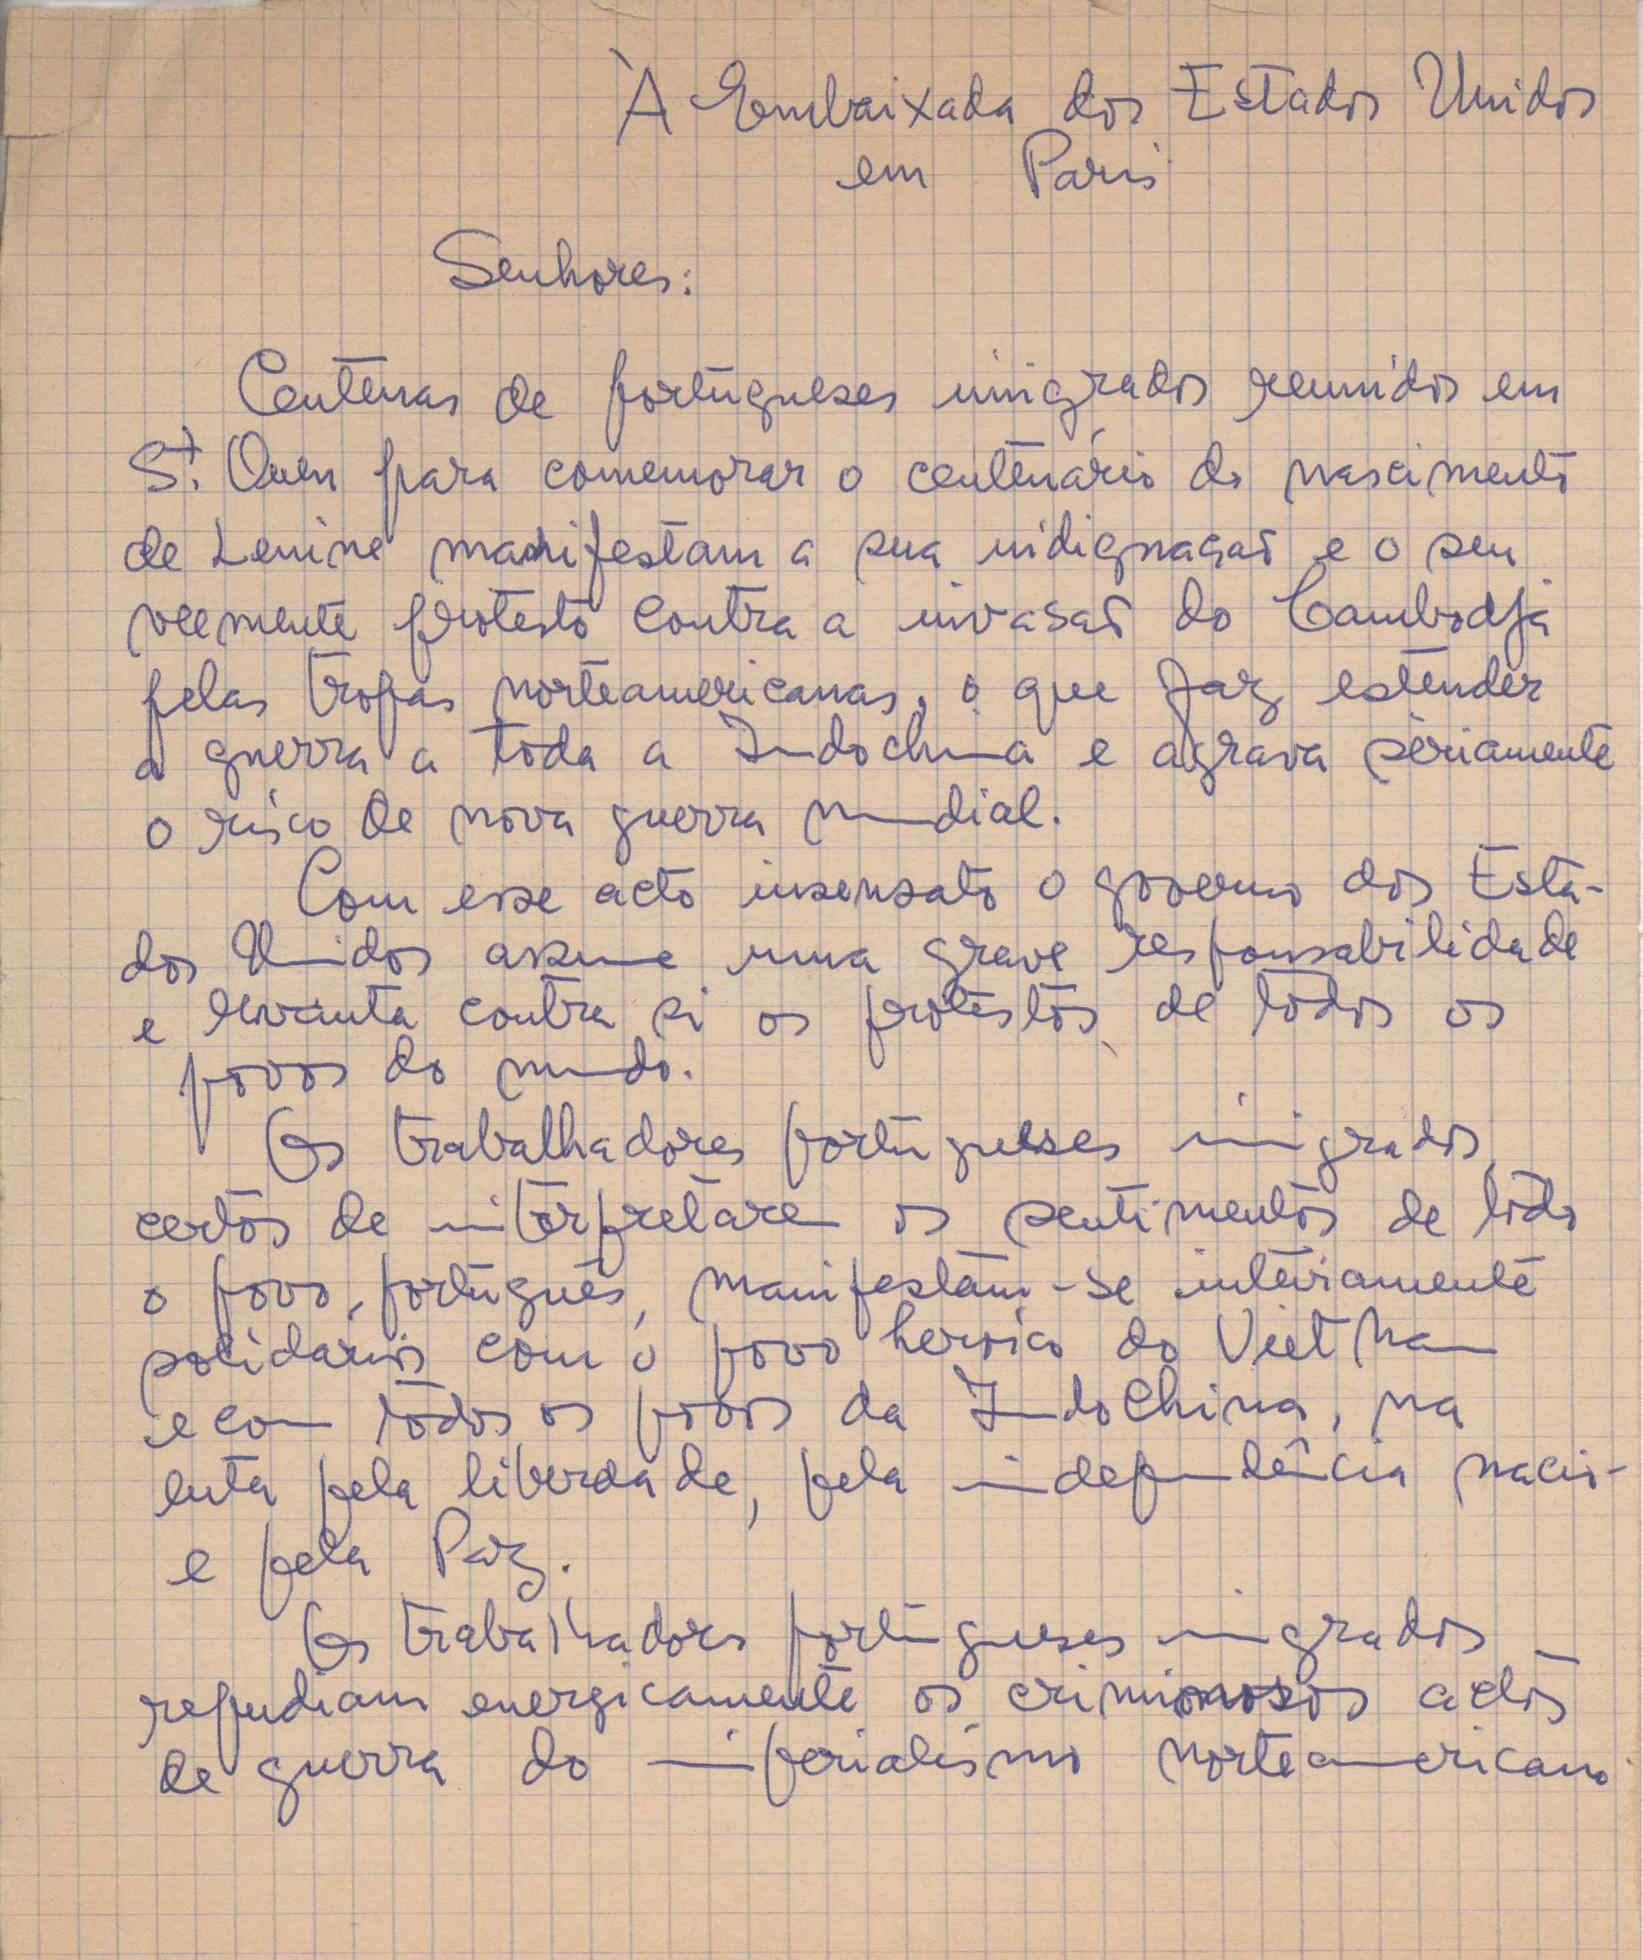 À Embaixada dos Estados Unidos
em Paris
Senhores:
Centenas de portugueses imigrados reunidos em
St. Ouen para comemorar o centenário do nascimento
de Lenine manifestam a sua indignação e o seu
veemente protesto contra a invasão do Cambodja
pelas tropas norteamericanas, o que faz estender
a guerra a toda a Indochina e agrava sèriamente
o risco de nova guerra mundial.
Com esse acto insensato o governo dos Esta-
dos Unidos assume uma grave responsabilidade
e levanta contra si os protestos de todos os
povos do mundo.
Os trabalhadores portugueses imigrados,
certos de interpretarem os sentimentos de todo
o povo português, manifestam-se inteiramente
solidários com o povo heroico do Viet Nam
e com todos os povos da Indochina, na
luta pela liberdade, pela independência nacio-
e pela Paz.
Os trabalhadores portugueses imigrados
repudiam energicamente os criminosos actos
de guerra do imperialismo norteamericano.